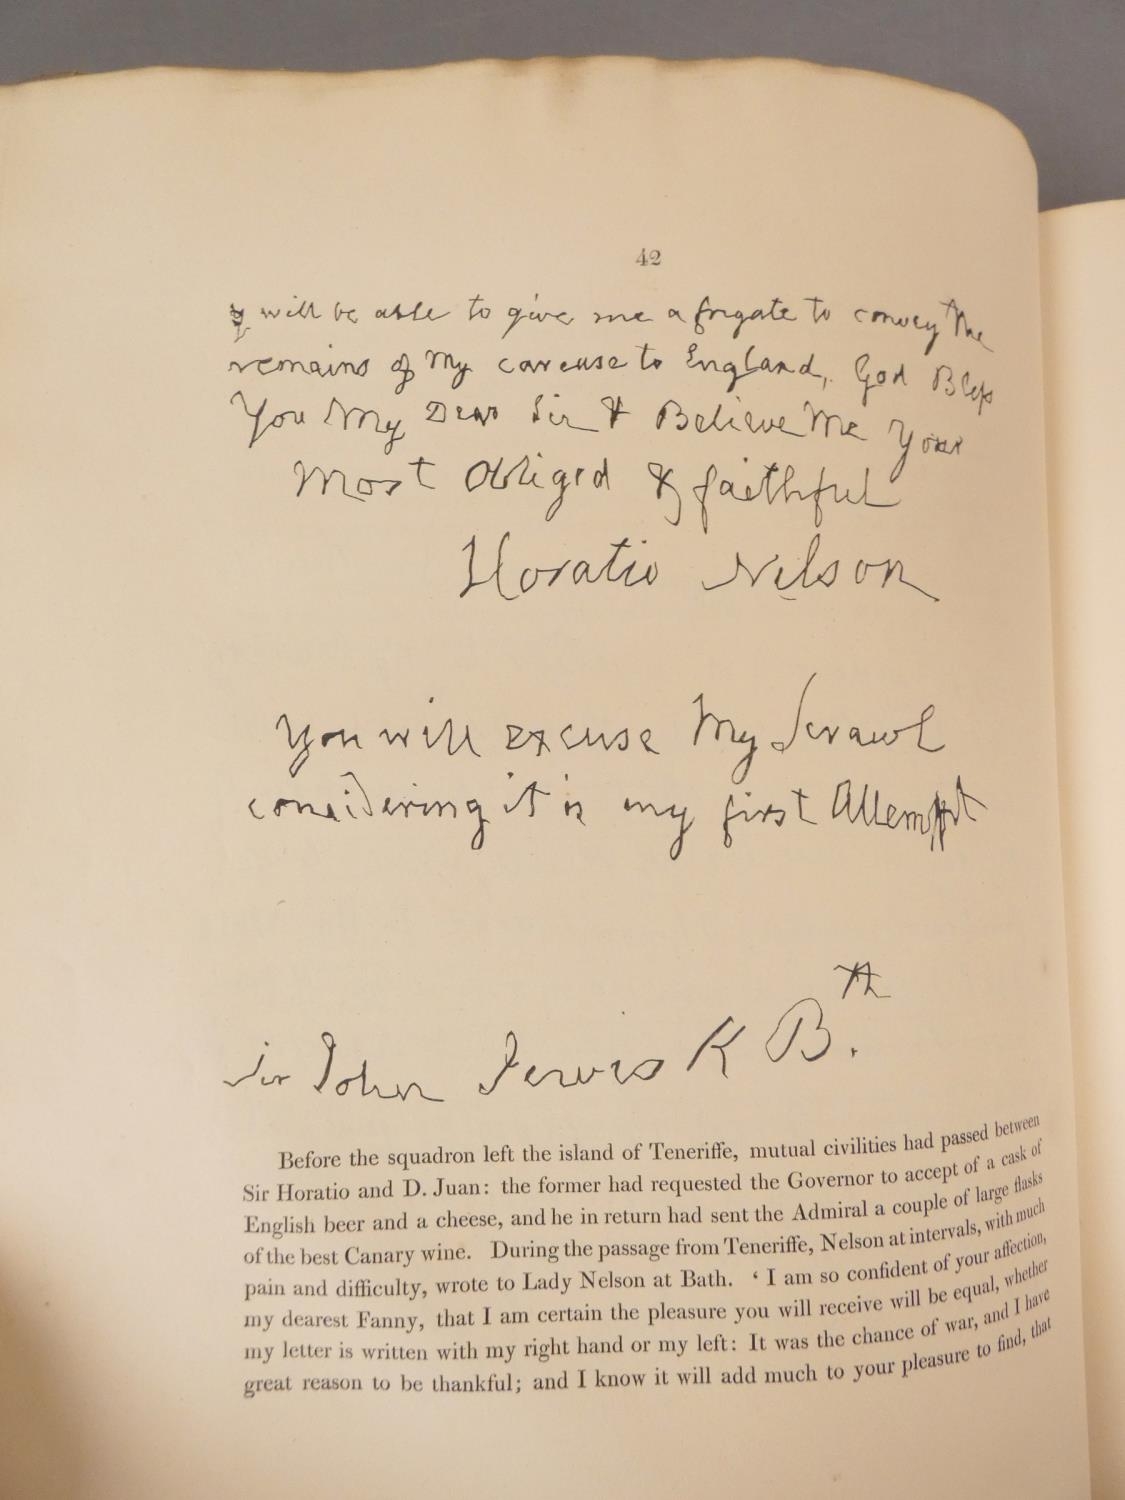 42
will be able to give me a frigate to convey the
remains of My carcuse to England, God Bless
You My Dear Sir & Believe Me Your
Most Obliged & faithful
Horatio Nelson
You will excuse My Scrawl
considering it is my first Attempt
Sir John Jervis K B.th
Before the squadron left the island of Teneriffe, mutual civilities had passed between
Sir Horatio and D. Juan: the former had requested the Governor to accept of a cask of
English beer and a cheese, and he in return had sent the Admiral a couple of large flasks
of the best Canary wine. During the passage from Teneriffe, Nelson at intervals, with much
pain and difficulty, wrote to Lady Nelson at Bath. ‘ I am so confident of your affection,
my dearest Fanny, that I am certain the pleasure you will receive will be equal, whether
my letter is written with my right hand or my left: It was the chance of war, and I have
great reason to be thankful; and I know it will add much to your pleasure to find, that